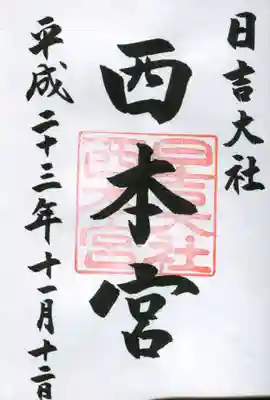 日吉大社
西本宮
日吉大社
西本宮
平成二十三年十一月十二日